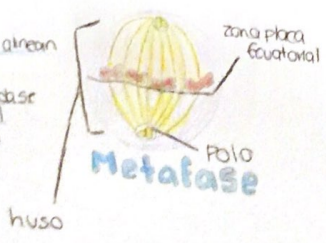 alinean
zona placa
Ecuatorial
fase
Polo
Metafase
huso